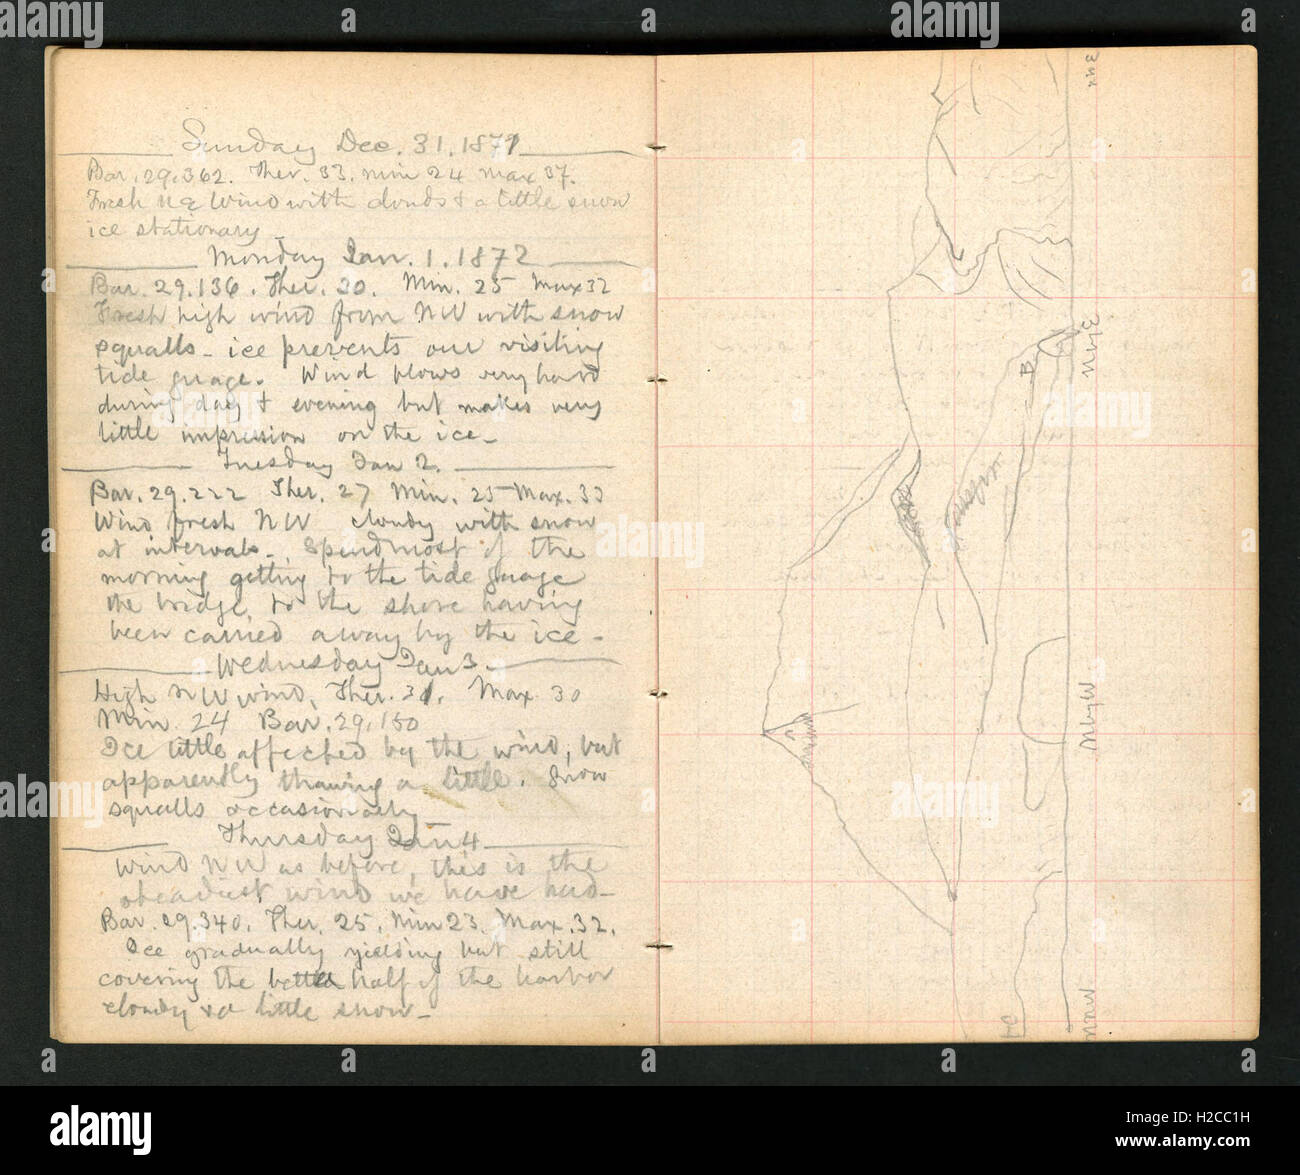 Sunday Dec. 31. 1871
Bar. 29.362. Ther. 33. min 24 max 37.
Fresh NE Wind with clouds & a little snow
ice stationary
Monday Jan. 1. 1872
Bar. 29.136. Ther. 30. Min. 25 Max 32
Fresh high wind from NW with snow
squalls - ice prevents our visiting
tide guage. Wind blows very hard
during day & evening but makes very
little impression on the ice -
Tuesday Jan 2.
Bar. 29.222 Ther. 27 Min. 25 Max. 33
Wind fresh NW cloudy with snow
at intervals - Spend most of the
morning getting to the tide guage
the bridge to the shore having
been carried away by the ice -
Wednesday Jan 3
High NW wind, Ther. 31. Max 30
Min. 24 Bar. 29.150
Ice little affected by the wind, but
apparently thawing a little. Snow
squalls occasionally
Thursday Jan 4
Wind NW as before, this is the
steadiest wind we have had -
Bar. 29.340. Ther. 25. Min 23. Max. 32.
Ice gradually yielding but still
covering the better half of the harbor
cloudy & a little snow -
B
NNW
alamy
H2CC1H
www.alamy.com